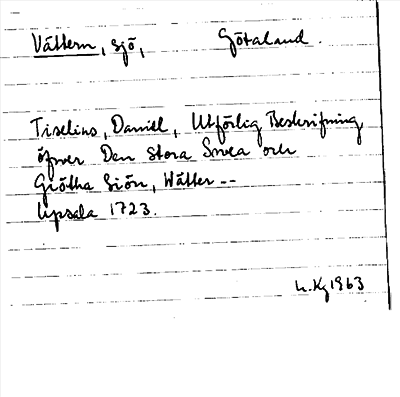 Vättern, sjö, Götaland.
Tiselius, Daniel, Utförlig Beskrifning
öfver Den stora Swea och
Giötha Siön, Wätter --
Upsala 1723.
L. Kg 1963